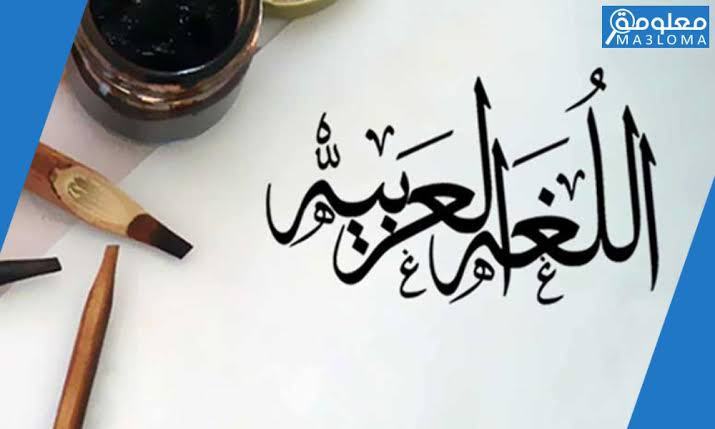 معلومة
MA3LOMA
اللُغه العربيه